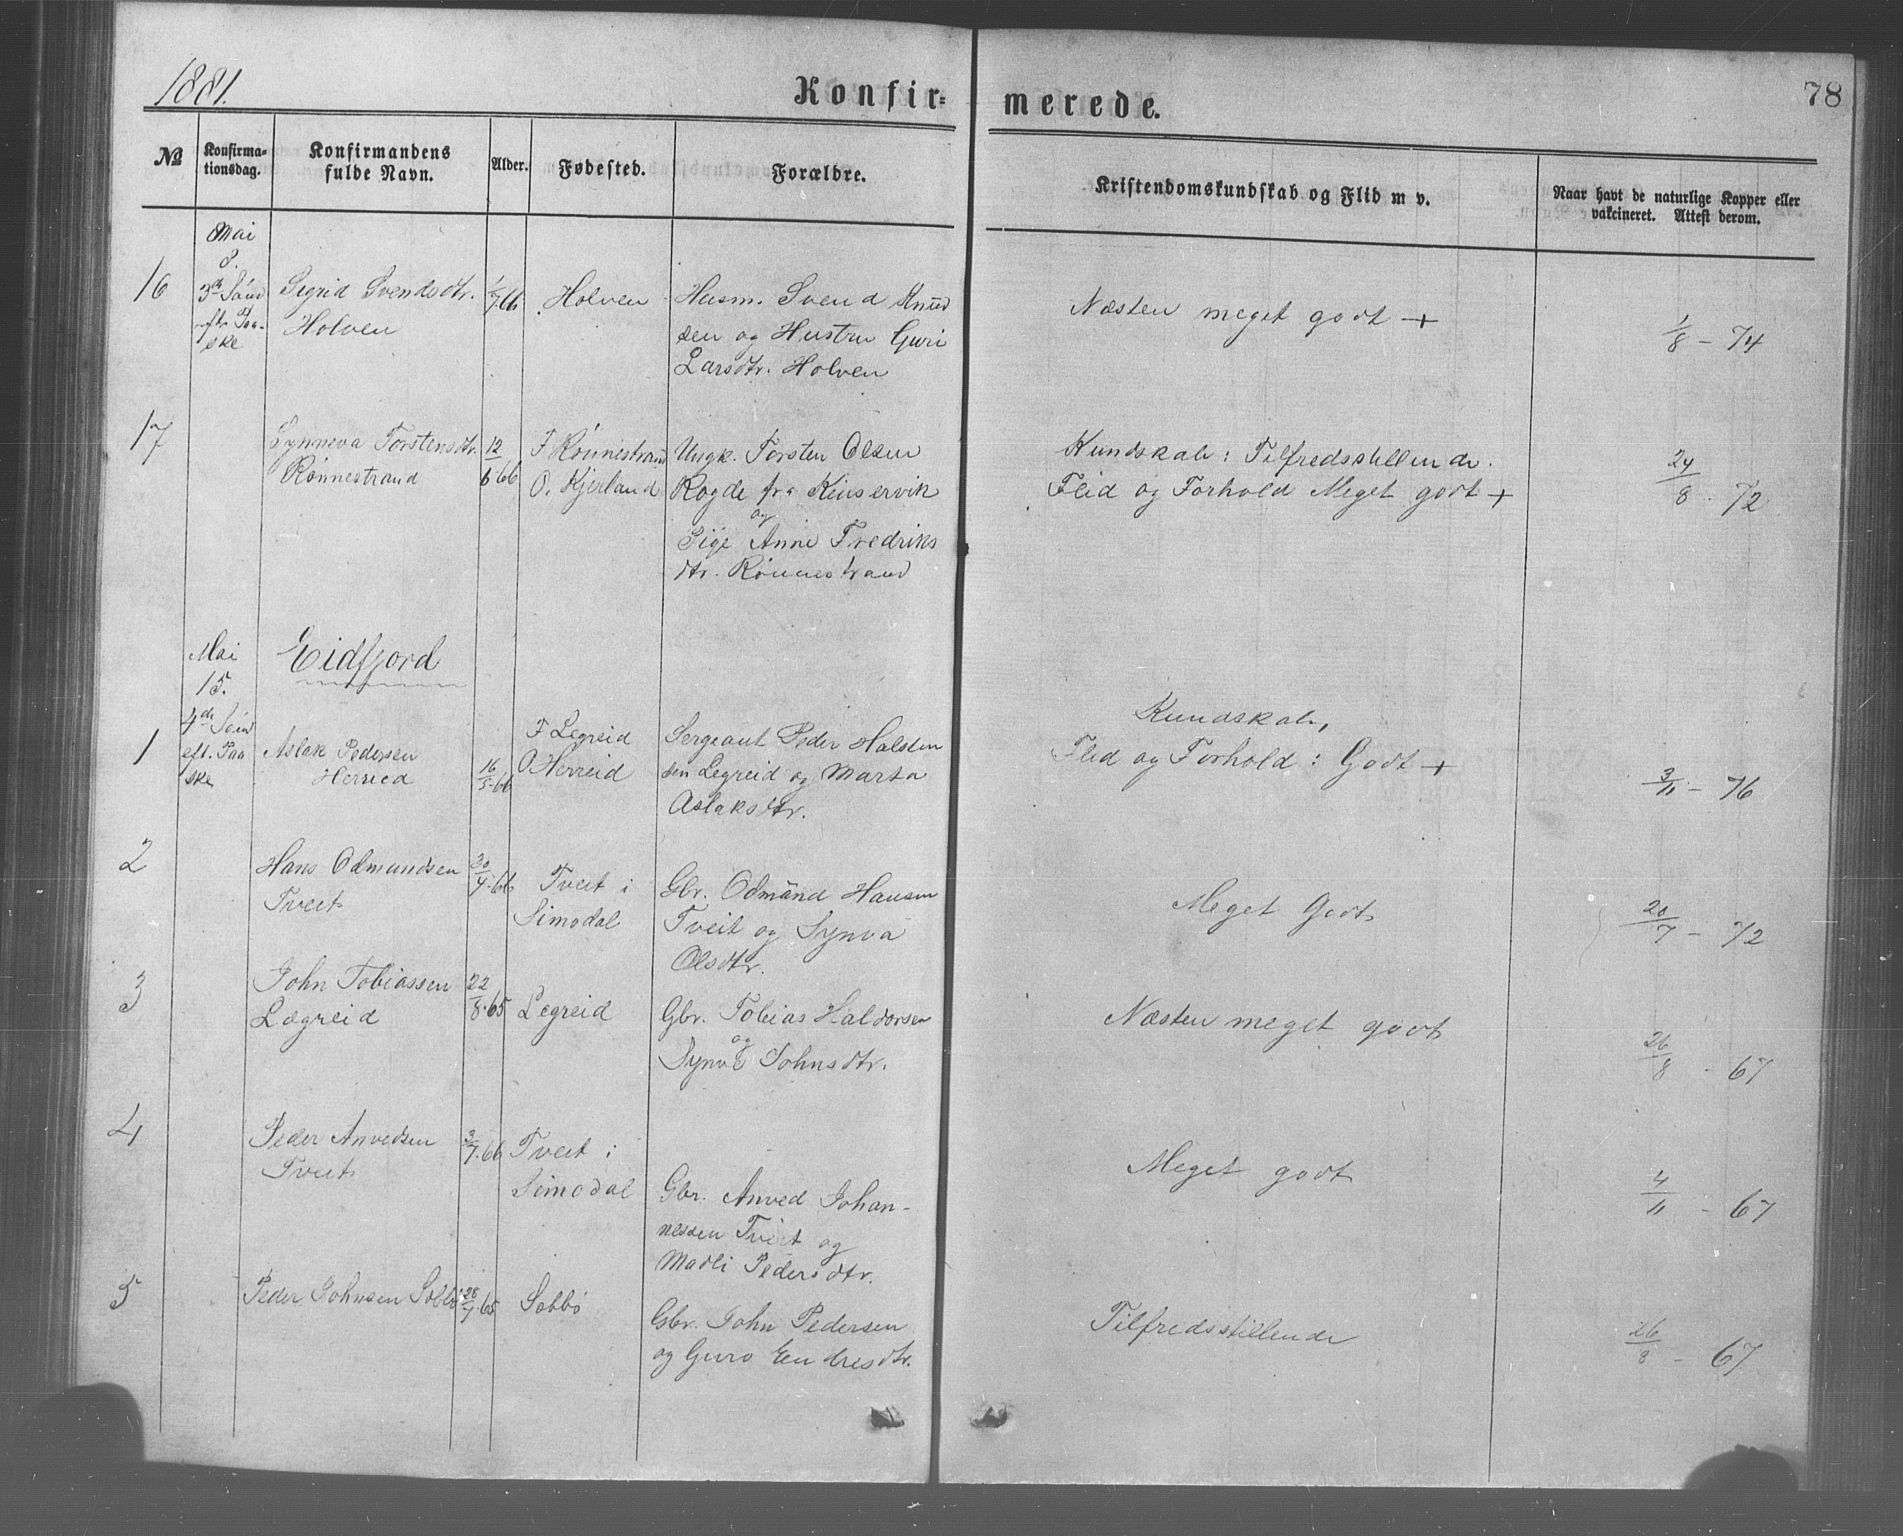 1881.
Konfir=
merede.
78
No
Konfirma-
tionsdag.
Konfirmandens
fulde Navn.
Alder.
Fødested.
Forældre.
Kristendomskundskab og Flid m v.
Naar havt de naturlige Kopper eller
vakcineret. Attest derom.
Mai
8.
3de Sønd
eft. Paa-
ske
16
Sigrid Svendsdtr.
Holven
1/7 66
Holven
Husm. Svend Knud
sen og Hustru Guri
Larsdtr. Holven
Næsten meget godt +
1/8 - 74
17
Synneva Torstensdtr.
Rønnestrand
12/6 66
F Rønnestrand
O. Kjerland
Ungk. Torsten Olsen
Rogde fra Kinservik
og
Pige Anne Fredriks
dtr. Rønnestrand
Kundskab: Tilfredsstillende.
Flid og Forhold Meget godt +
24/8 - 72
Mai
15.
4de Sønd
eft. Paa
ske
Eidfjord
1
Aslak Pedersen
Herreid
16/5 - 66
F Legreid
O Herreid
Sergeant Peder Halsten
sen Legreid og Marta
Aslaksdtr.
Kundskab,
Flid og Forhold: Godt +
3/11 - 76
2
Hans Odmundsen
Tveit
30/4 - 66
Tveit i
Simodal
Gbr. Odmund Hansen
Tveit og Synva
Olsdtr.
Meget Godt
20/7 - 72
3
John Tobiassen
Lægreid
22/8 - 65
Legreid
Gbr. Tobias Haldorsen
og
Synve Johnsdtr.
Næsten meget godt
26/8 - 67
4
Peder Anvedsen
Tveit
3/7 - 66
Tveit i
Simodal
Gbr. Anved Johan-
nessen Tveit og
Madli Pedersdtr.
Meget godt
4/11 - 67
5
Peder Johnsen Sæbbø
28/7 - 65
Sæbbø
Gbr. John Pedersen
og Guro Endresdtr.
Tilfredsstillende
26/8 - 67